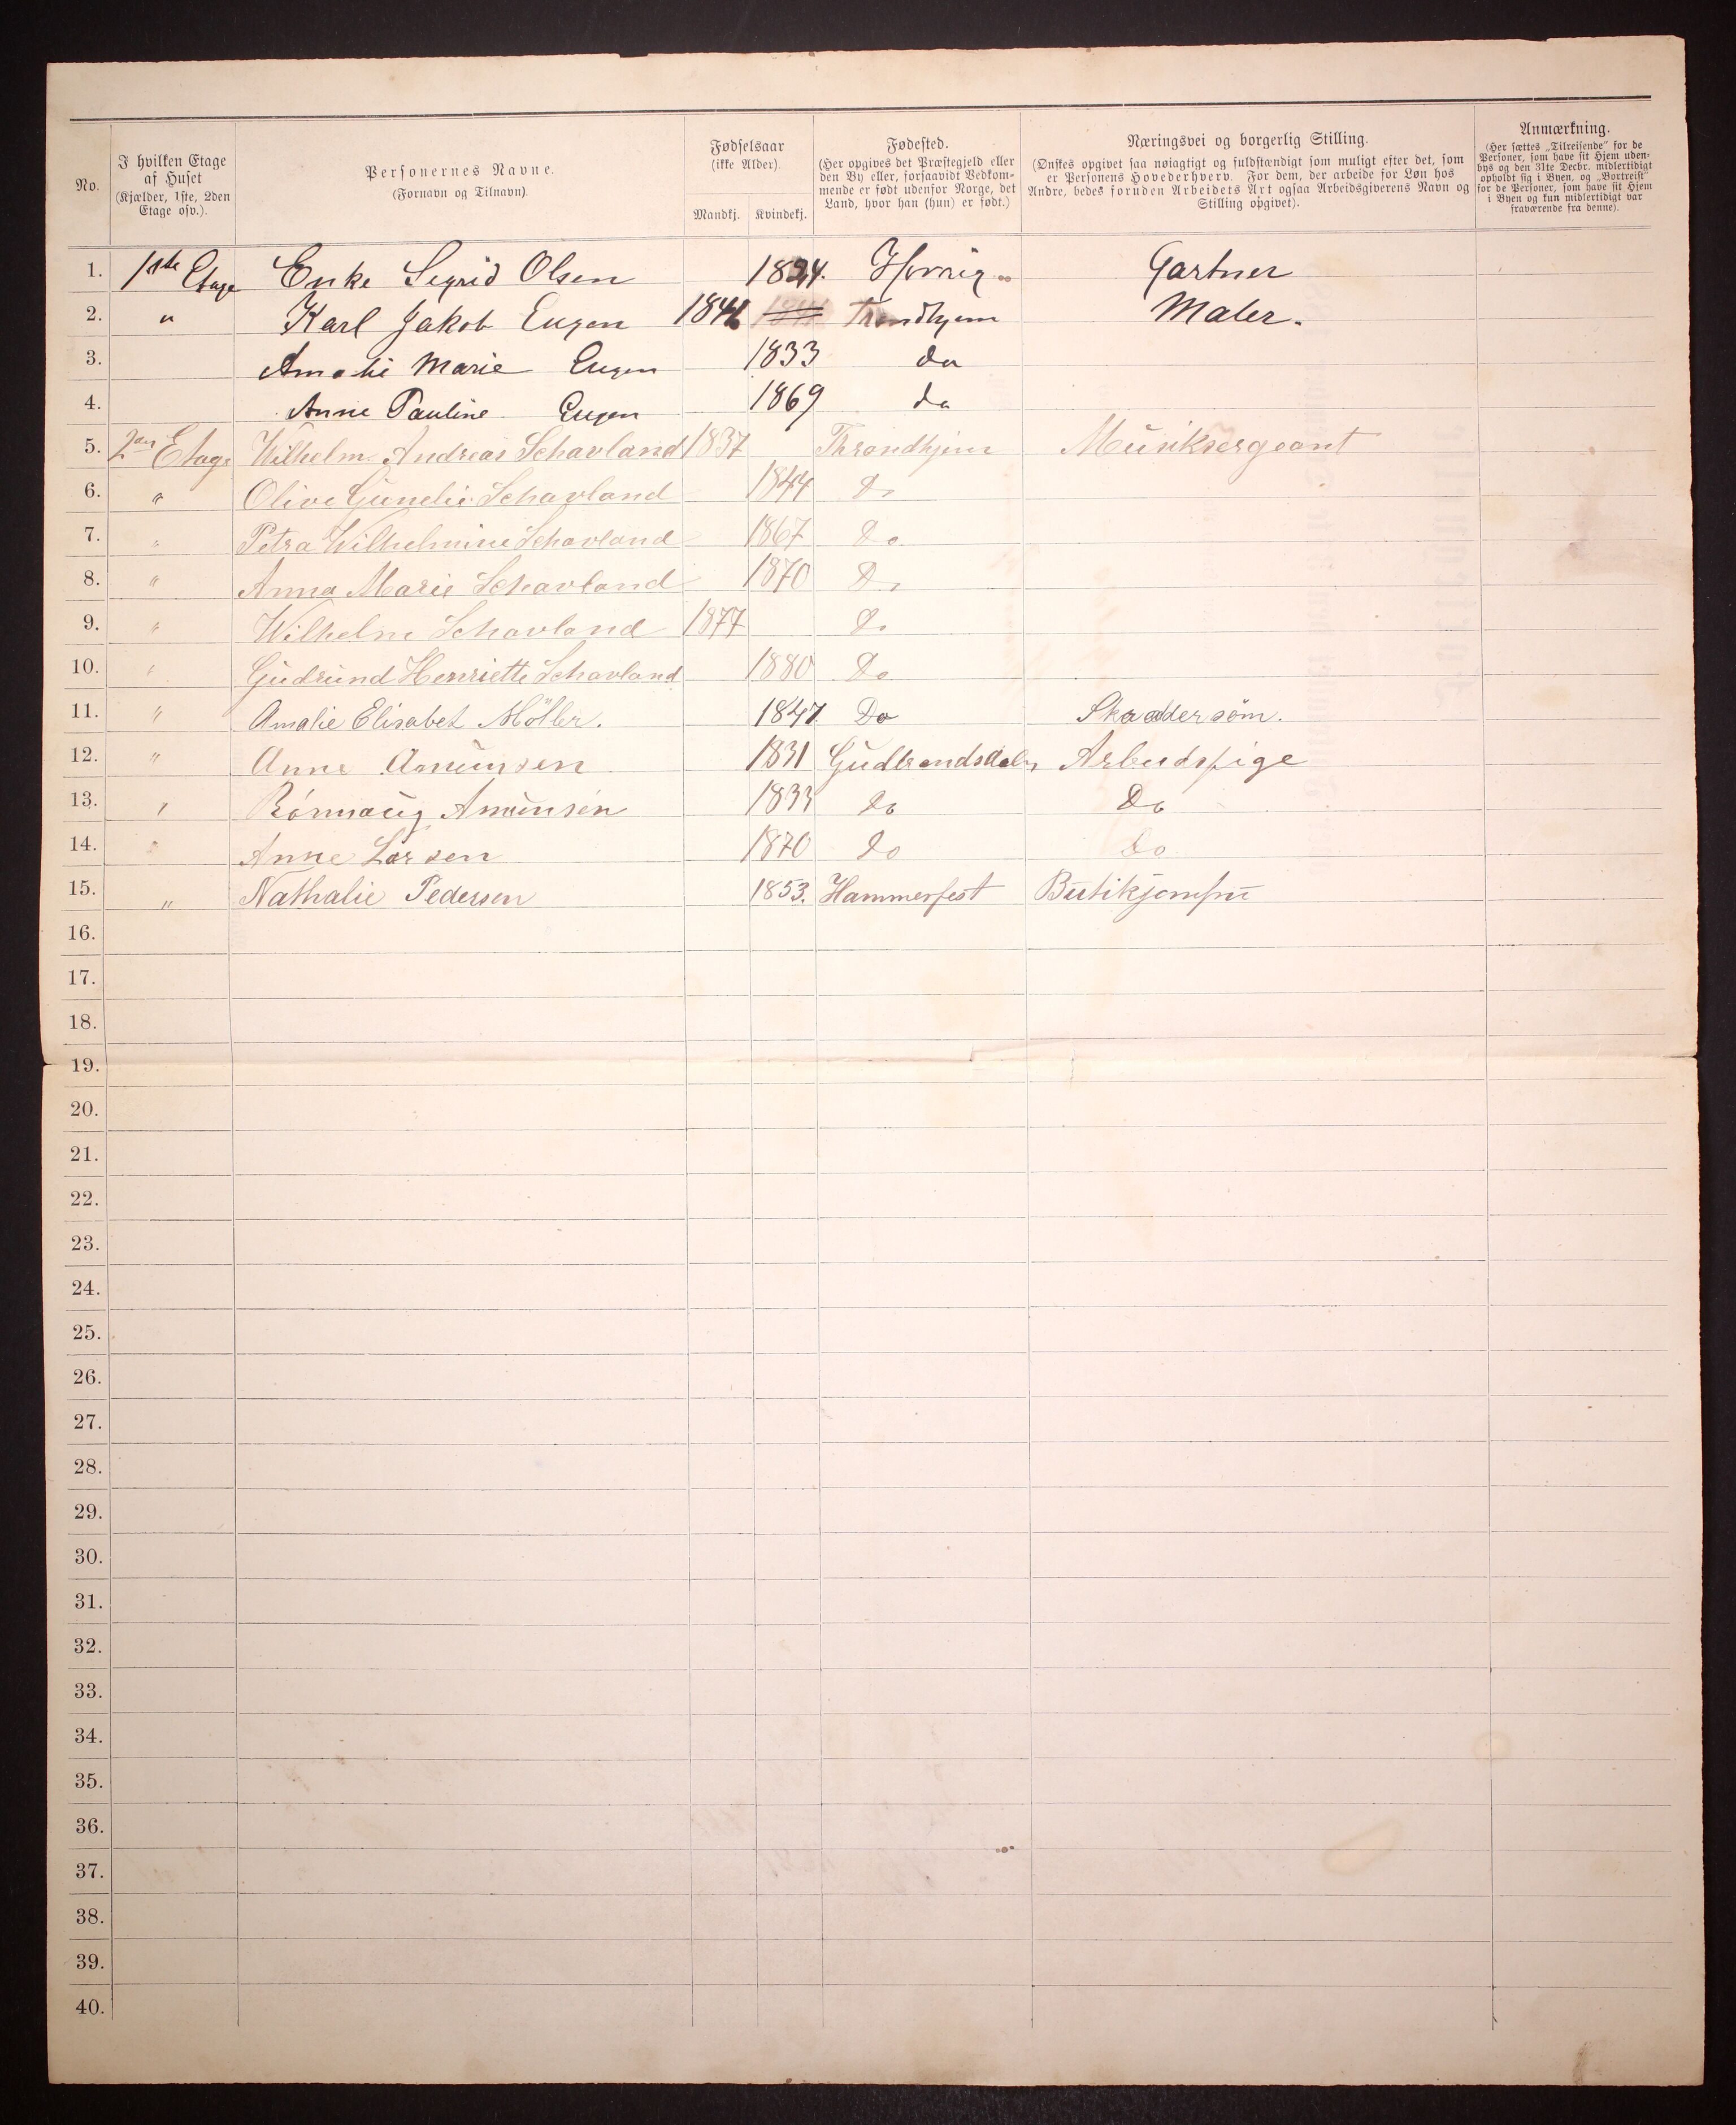 No.
I hvilken Etage af Huset (Kjælder, 1ste, 2den Etage osv.).
Personernes Navne. (Fornavn og Tilnavn).
Fødselsaar (ikke Alder).
Mandkj. Kvindekj.
Fødested. (Her opgives det Præstegjeld eller den By eller, forsaavidt Vedkommende er født udenfor Norge, det Land, hvor han (hun) er født.)
Næringsvei og borgerlig Stilling. (Ønskes opgivet saa nøiagtigt og fuldstændigt som muligt efter det, som er Personens Hovederhverv. For dem, der arbeide for Løn hos Andre, bedes foruden Arbeidets Art ogsaa Arbeidsgiverens Navn og Stilling opgivet).
Anmærkning. (Her sættes „Tilreisende" for de Personer, som have sit Hjem udenbys og den 31te Decbr. midlertidigt opholdt sig i Byen, og „Bortreist" for de Personer, som have sit Hjem i Byen og kun midlertidigt var fraværende fra denne).
1. 1ste Etage Enke Sigrid Olsen 1824. Gartner
2. " Karl Jakob Eugen 1841 Trondhjem Maler.
3. Amalie Marie Eugen 1833 do
4. Anne Pauline Eugen 1869 do
5. 2den Etage Wilhelm Andreas Schavland 1837 Throndhjem Musiksergeant
6. " Olive Schavland 1844 Do
7. " Petra Wilhelmine Schavland 1867 Do
8. " Anna Marie Schavland 1870 Do
9. " Wilhelm Schavland 1877 Do
10. " Gudrund Henriette Schavland 1880 Do
11. " Amalie Elisabet Möller. 1847 Do Skraddersöm.
12. " Anne Amunsen 1831 Gudbrandsdalen Arbeidspige
13. " Rönnaug Amunsen 1833 do Do
14. " Anne Larsen 1870 do Do
15. " Nathalie Pedersen 1853. Hammerfest Butikjomfru
16.
17.
18.
19.
20.
21.
22.
23.
24.
25.
26.
27.
28.
29.
30.
31.
32.
33.
34.
35.
36.
37.
38.
39.
40.